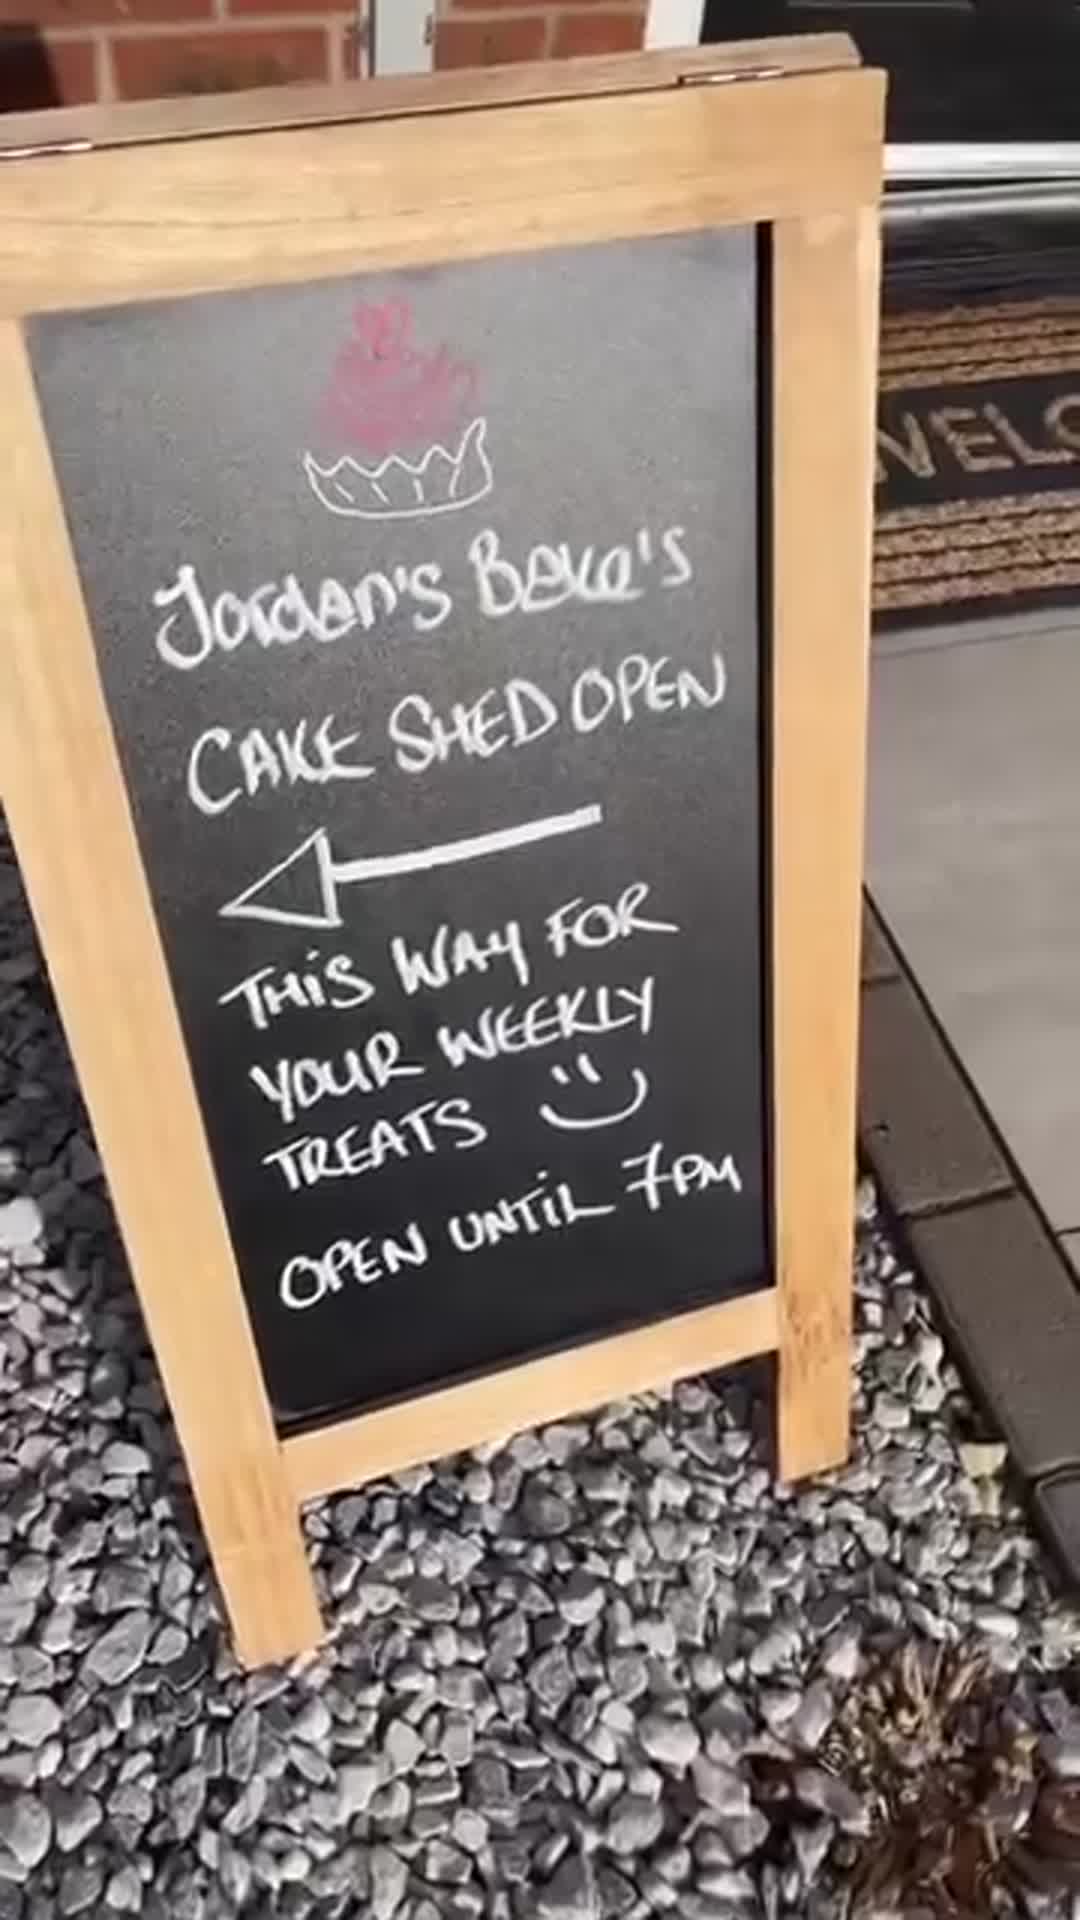 Jordan's Bake's
CAKE SHED OPEN
THIS WAY FOR
YOUR WEEKLY
TREATS
OPEN UNTIL 7PM
WELC